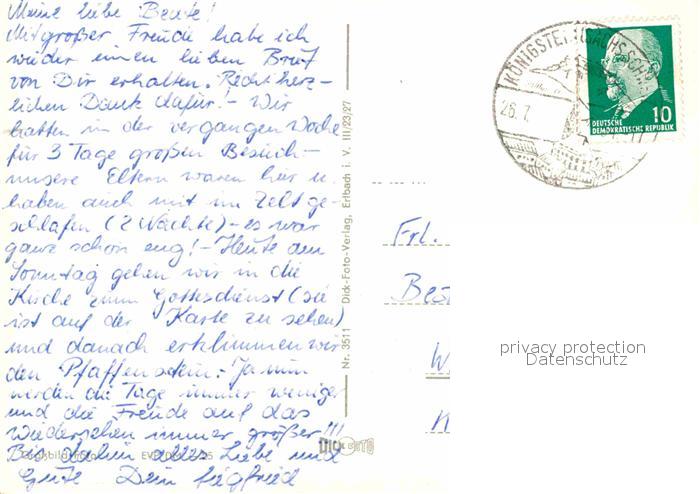 Meine liebe Beate!
Mit großer Freude habe ich
wieder einen lieben Brief
von Dir erhalten. Recht herz-
lichen Dank dafür. - Wir
hatten in der vergangen Woche
für 3 Tage großen Besuch -
unsere Eltern waren hier u.
haben auch mit im Zelt ge-
schlafen (2 Nächte) - es war
ganz schön eng! - Heute am
Sonntag gehen wir in die
Kirche zum Gottesdienst (sie
ist auf der Karte zu sehen)
und danach erklimmen wir
den Pfaffenstein. - Ja nun
werden die Tage immer weniger
und die Freude auf das
Wiedersehen immer größer!!!
Bis dahin alles Liebe und
Gute Dein Siegfried
Nr. 3511 Dick-Foto-Verlag, Erlbach i. V. III/23/27
DICK FOTO
KÖNIGSTEIN (SÄCHS. SCHW
26. 7.
10
DEUTSCHE
DEMOKRATISCHE REPUBLIK
Frl.
Best
W
privacy protection
Datenschutz